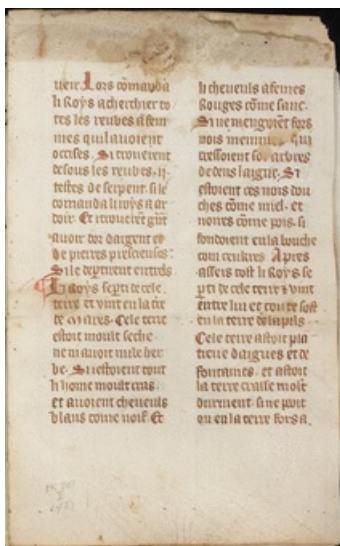 ueir. Lors cōmanda
li Roys a cherchier to
tes les reubes a fem
mes qui lauoient
occises. Si trouerent
desous les reubes. ij.
testes de serpent. si le
comanda li roys a ar
doir. Et trouerēt gūt
auoir dor dargent et
de pierres prescieuses.
Si le deptirent entreds
Li Roys se pti de cele
terre et vint en la tre
de mares. Cele terre
estoit moult seche
ne ni auoit nule her
be. Si estoient tout
li home moult cras.
et auoient cheueuls
blans come noif. Et
li cheueuls a femes
Rouges cōme sanc.
Si ne mengoiēt fors
nois menues. qui
cressoient sor arbres
dedens laigue. Si
estoient ces nois dou
ches cōme miel. et
noires cōme pois. si
fondoient en la bouche
com cucres. Apres
asseis tost li Roys se
pti de cele terre et vint
entre lui et toute sost
en la terre de lapils
Cele terre astoit pla
tieue daigues et de
fontaines. et astoit
la terre crasse molt
durment. si ne poit
on en la terre fors a.